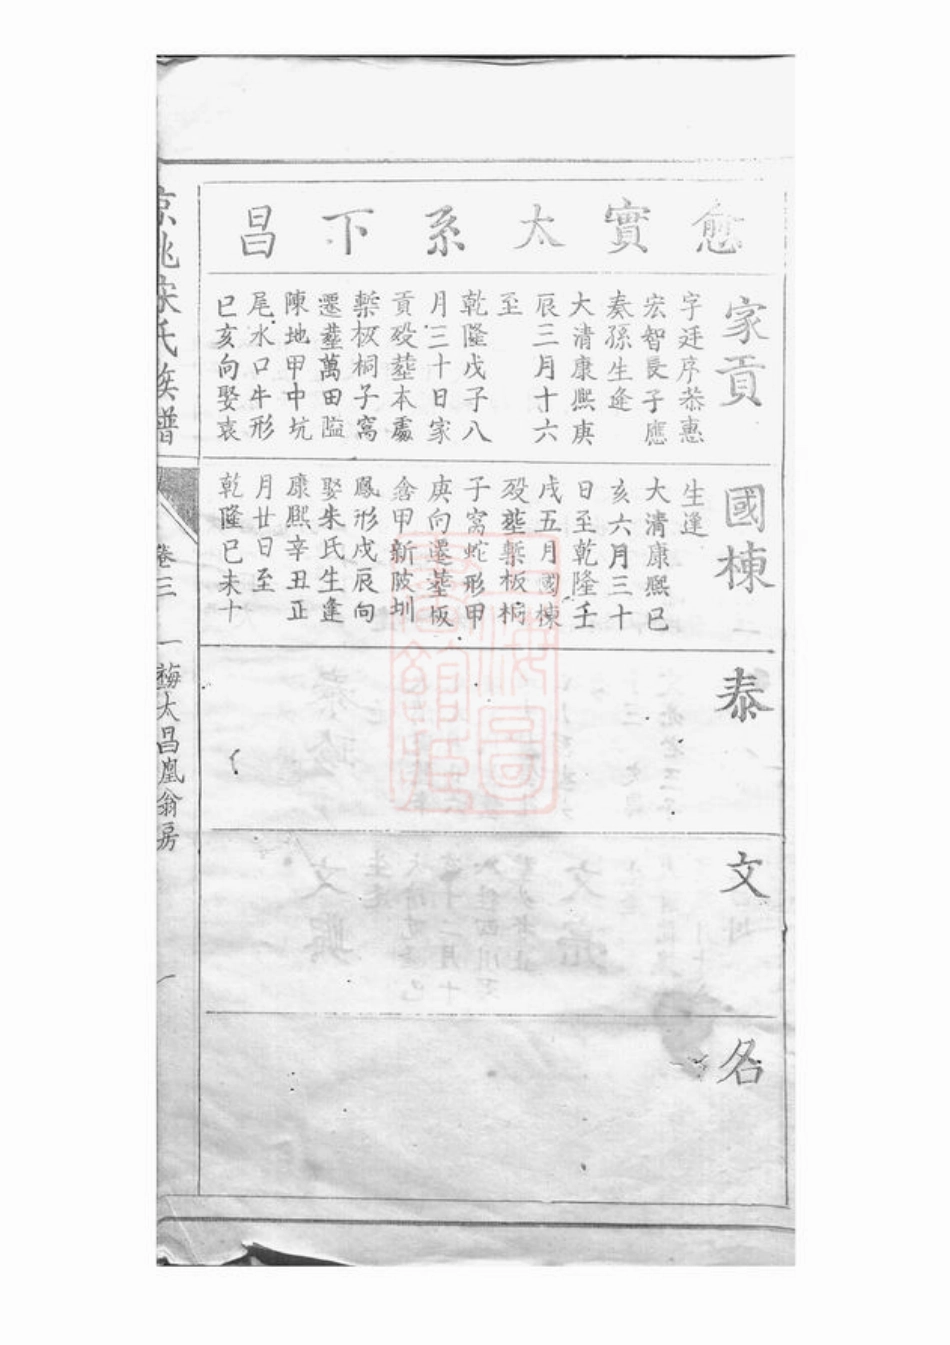 愈實太系下昌
家貢
字廷序恭惠
宏智長子應
奏孫生逢
大清康熙庚
辰三月十六
至
乾隆戊子八
月三十日家
貢歿塟本處
槧板桐子窩
遷塟萬田隘
陳地甲中坑
尾水口牛形
巳亥向娶袁
國棟
生逢
大清康熙已
亥六月三十
日至乾隆壬
戌五月國棟
歿塟槧板桐
子窩蛇形甲
庚向遷塟板
含甲新陂圳
鳳形戌辰向
娶朱氏生逢
康熙辛丑正
月廿日至
乾隆已未十
泰
文
名
京兆宋氏族譜
卷三
一梅大昌凰翁房